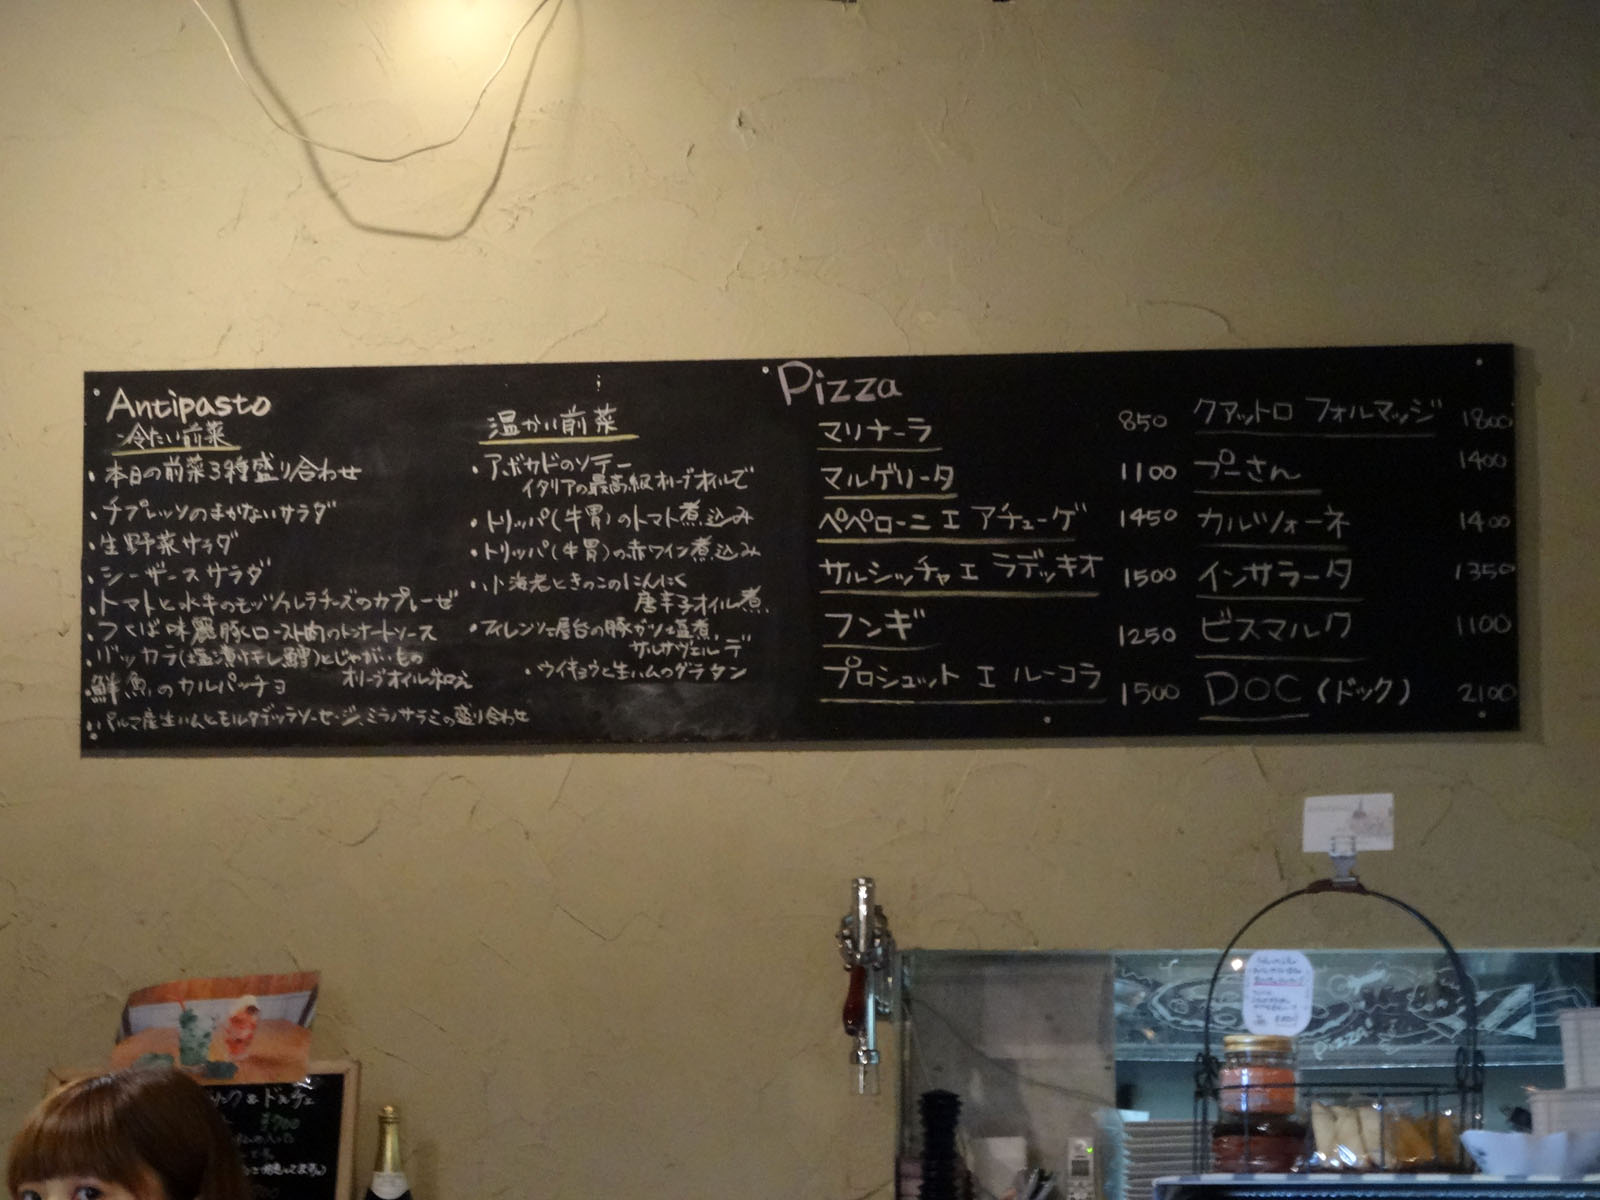 Antipasto
冷たい前菜
・本日の前菜3種盛り合わせ
・チプレッソのまかないサラダ
・生野菜サラダ
・シーザースサラダ
・トマトと水牛のモッツァレラチーズのカプレーゼ
・つくば味麗豚くロースト肉のトンナートソース
・バッカラ(塩漬け干し鱈)とじゃがいもの
オリーブオイル和え
・鮮魚のカルパッチョ
・パルマ産生ハムとモルタデッラソーセージ、ミラノサラミの盛り合わせ
温かい前菜
・アボカドのソテー
イタリアの最高級オリーブオイルで
・トリッパ(牛胃)のトマト煮込み
・トリッパ(牛胃)の赤ワイン煮込み
・小海老ときのこのにんにく
唐辛子オイル煮
・フィレンツェ屋台の豚ガツ塩煮
サルサヴェルーデ
・ウイキョウと生ハムのグラタン
Pizza
マリナーラ 850
マルゲリータ 1100
ペペローニ エ アチューゲ 1450
サルシッチャ エ ラデッキオ 1500
フンギ 1250
プロシュット エ ルーコラ 1500
クアットロ フォルマッジ 1800
プーさん 1400
カルツォーネ 1400
インサラータ 1350
ビスマルク 1100
DOC(ドック) 2100
ドルチェ
¥700
pizza